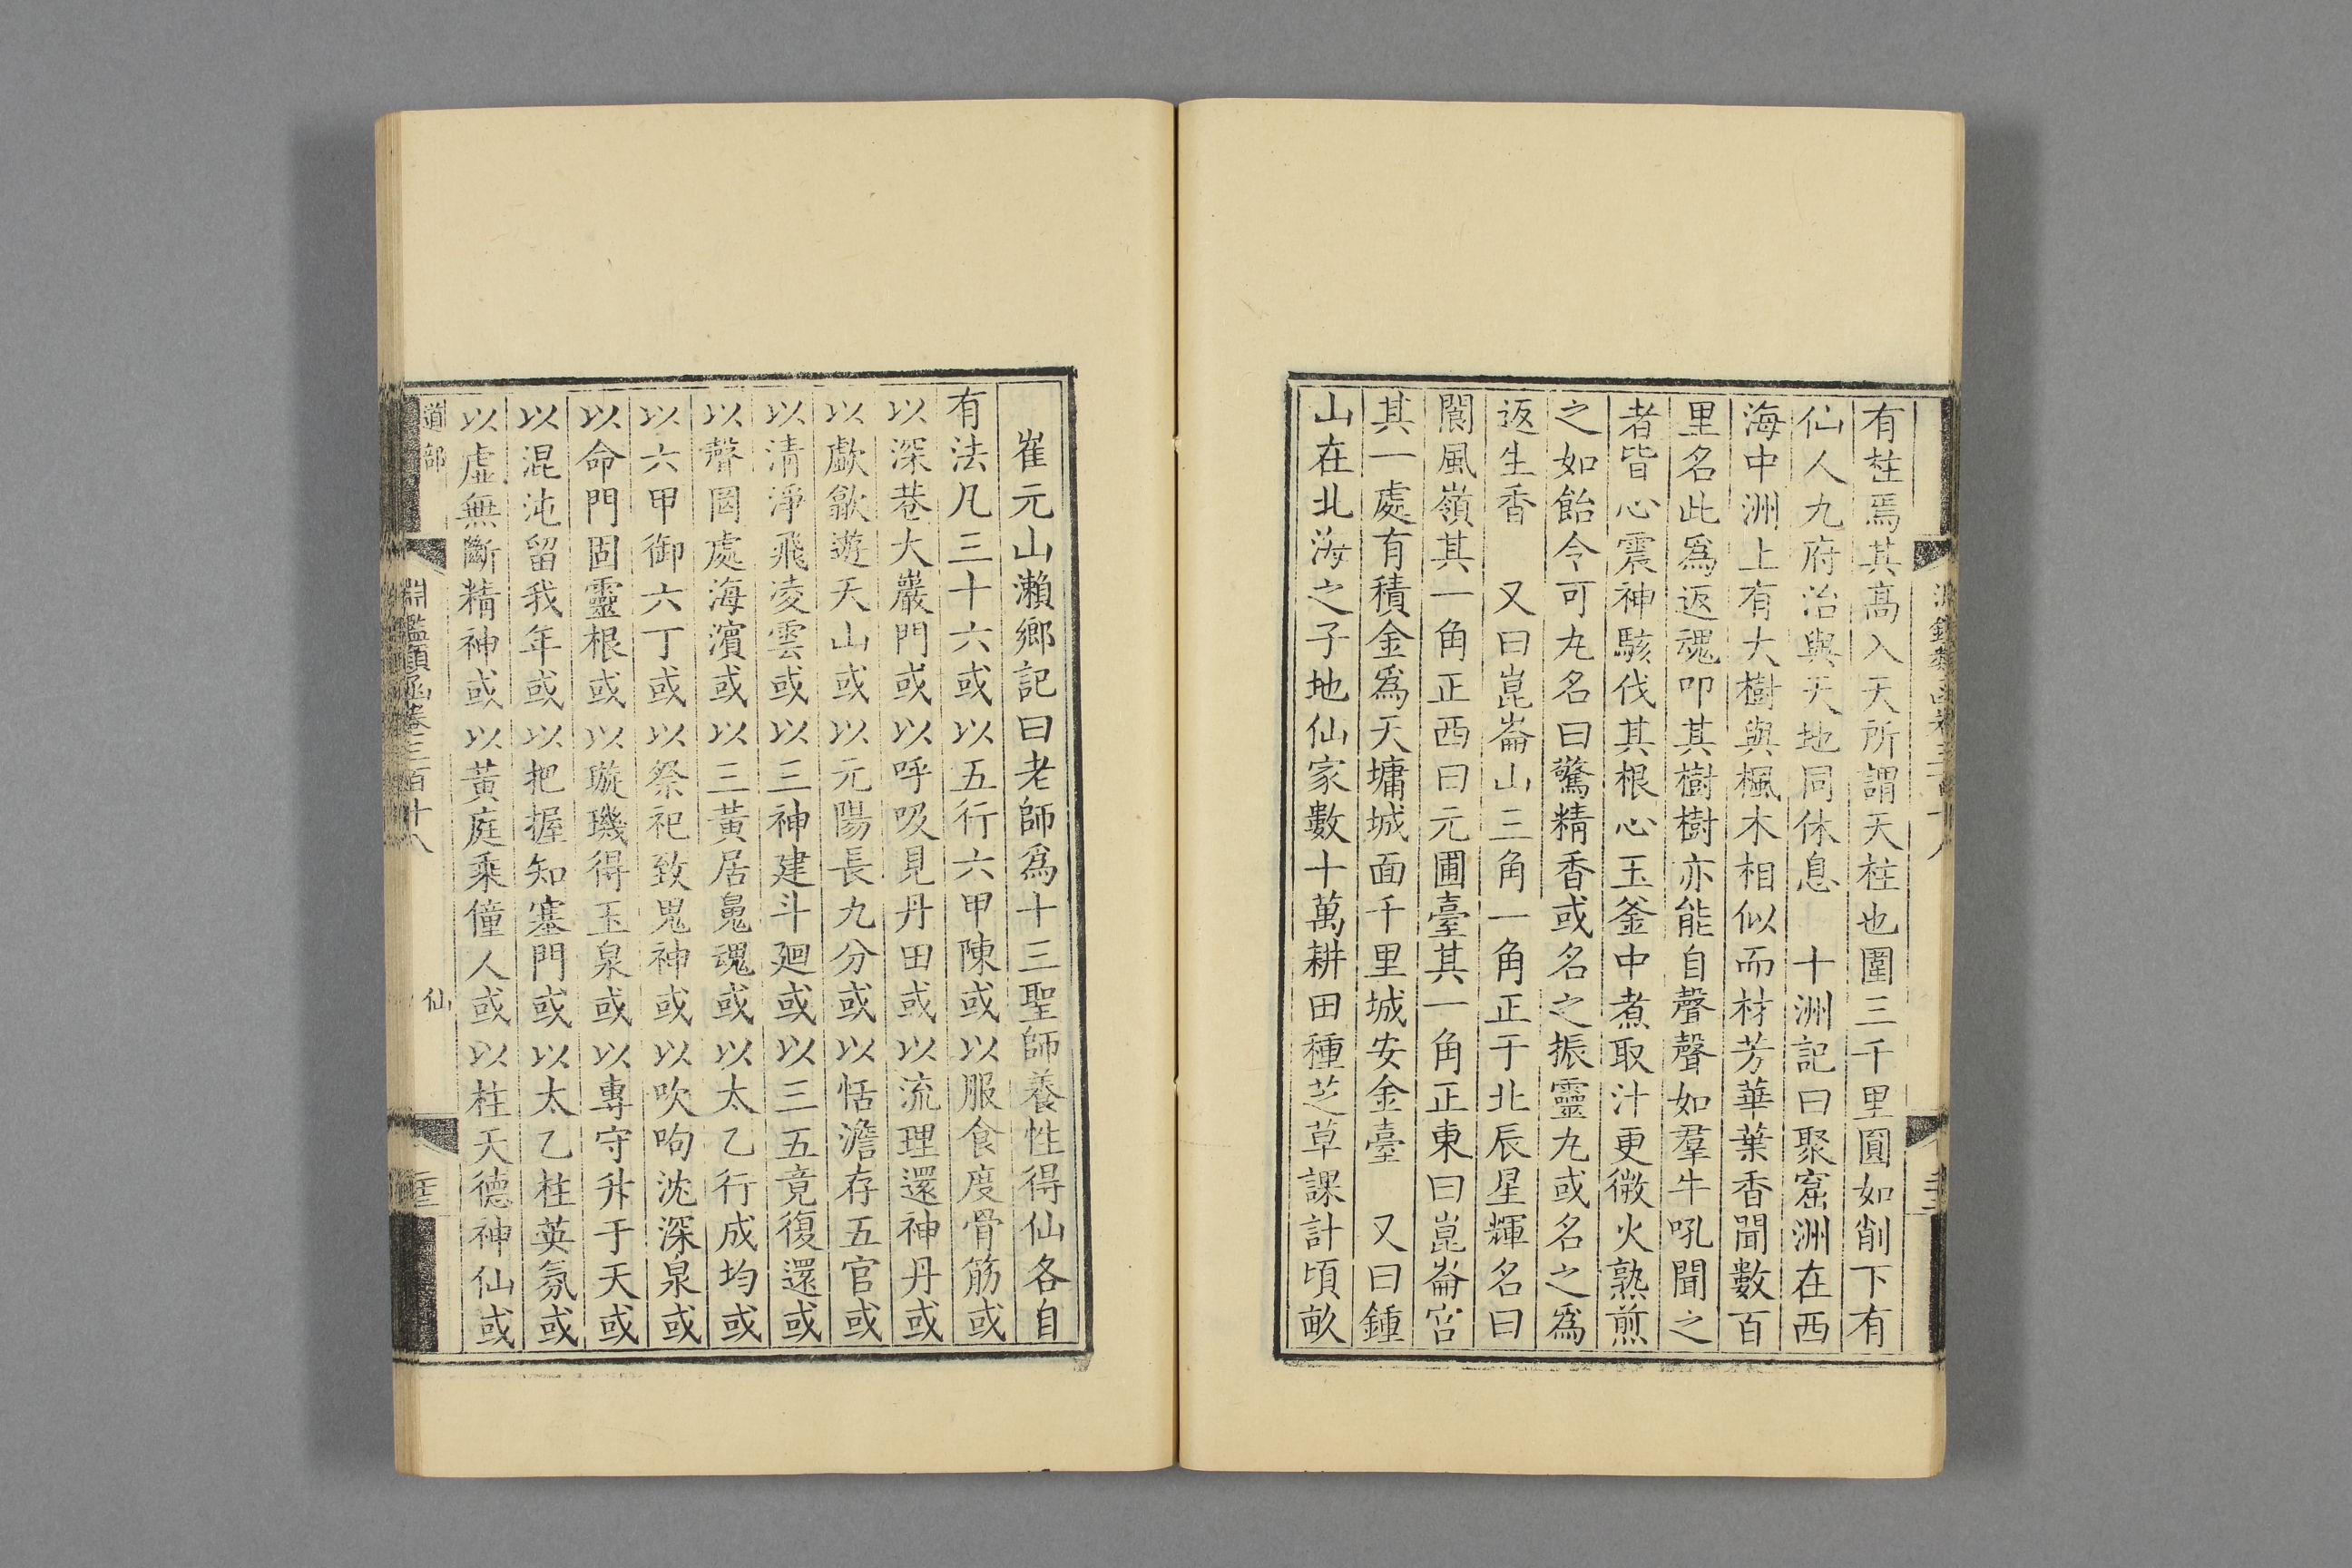 有柱焉其高入天所謂天柱也圍三千里圓如削下有
仙人九府治與天地同休息　十洲記曰聚窟洲在西
海中洲上有大樹與楓木相似而材芳華葉香聞數百
里名此爲返魂叩其樹樹亦能自聲聲如羣牛吼聞之
者皆心震神駭伐其根心玉釜中煮取汁更微火熟煎
之如飴令可丸名曰驚精香或名之振靈丸或名之爲
返生香　又曰崑崙山三角一角正于北辰星輝名曰
閬風嶺其一角正西曰元圃臺其一角正東曰崑崙宮
其一處有積金爲天墉城面千里城安金臺　又曰鍾
山在北海之子地仙家數十萬耕田種芝草課計頃畝
崔元山瀨鄉記曰老師爲十三聖師養性得仙各自
有法凡三十六或以五行六甲陳或以服食度骨筋或
以深巷大巖門或以呼吸見丹田或以流理還神丹或
以歔歙遊天山或以元陽長九分或以恬澹存五官或
以清淨飛凌雲或以三神建斗廻或以三五竟復還或
以聲罔處海濱或以三黃居鬼魂或以太乙行成均或
以六甲御六丁或以祭祀致鬼神或以吹呴沈深泉或
以命門固靈根或以璇璣得玉泉或以專守升于天或
以混沌留我年或以把握知塞門或以太乙柱英氛或
以虛無斷精神或以黃庭乘僮人或以柱天德神仙或
道部
淵鑑類函卷三百十八
仙